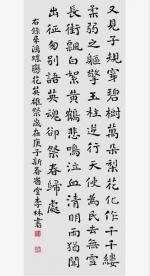 又見子規穿碧樹萬朵梨花化作千千縷
柔弱之軀擎玉柱逆行天使為民去無雪
長街飄白絮黃鶴悲鳴泣血清明雨猶聞
出征匆別語英魂卻祭春歸處
右錄鴻蝶戀花英雄祭歲在庚子新春堂李林書